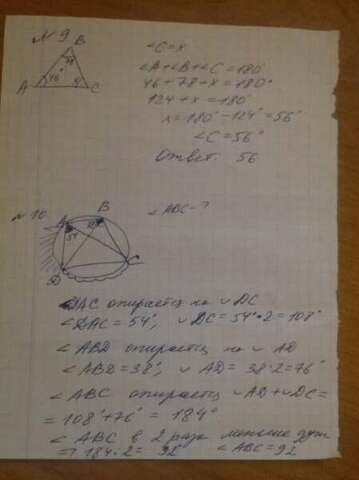 N 9
B
78
A 46 C
∠C = x
∠A+∠B+∠C = 180°
46 + 78 + x = 180°
124 + x = 180°
x = 180° - 124° = 56°
∠C = 56°
Ответ: 56
N 10
A B
54 38
D C
∠ABC - ?
∠DAC опирается на ∪ DC
∠DAC = 54°, ∪ DC = 54°·2 = 108°
∠ABD опирается на ∪ AD
∠ABD = 38°, ∪ AD = 38·2 = 76°
∠ABC опирается ∪ AD + ∪ DC =
= 108° + 76° = 184°
∠ABC в 2 раза меньше дуги
=> 184:2 = 92° ∠ABC = 92